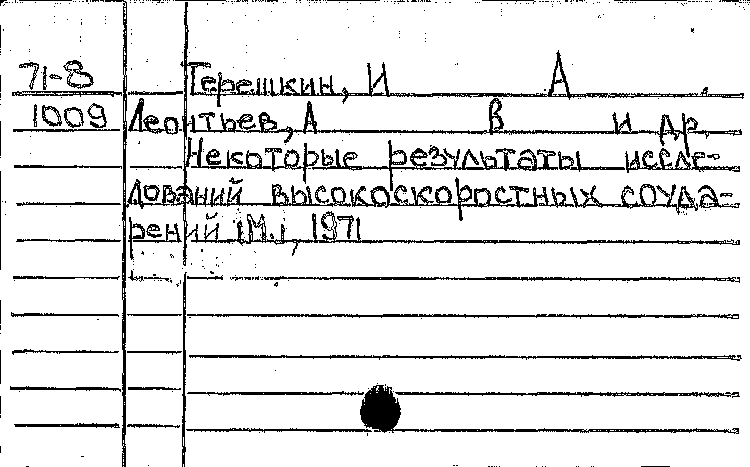 71-8 Терешкин, И А.
1009 Леонтьев, А В и др.
Некоторые результаты иссле-
дований высокоскоростных соуда-
рений [М.], 1971